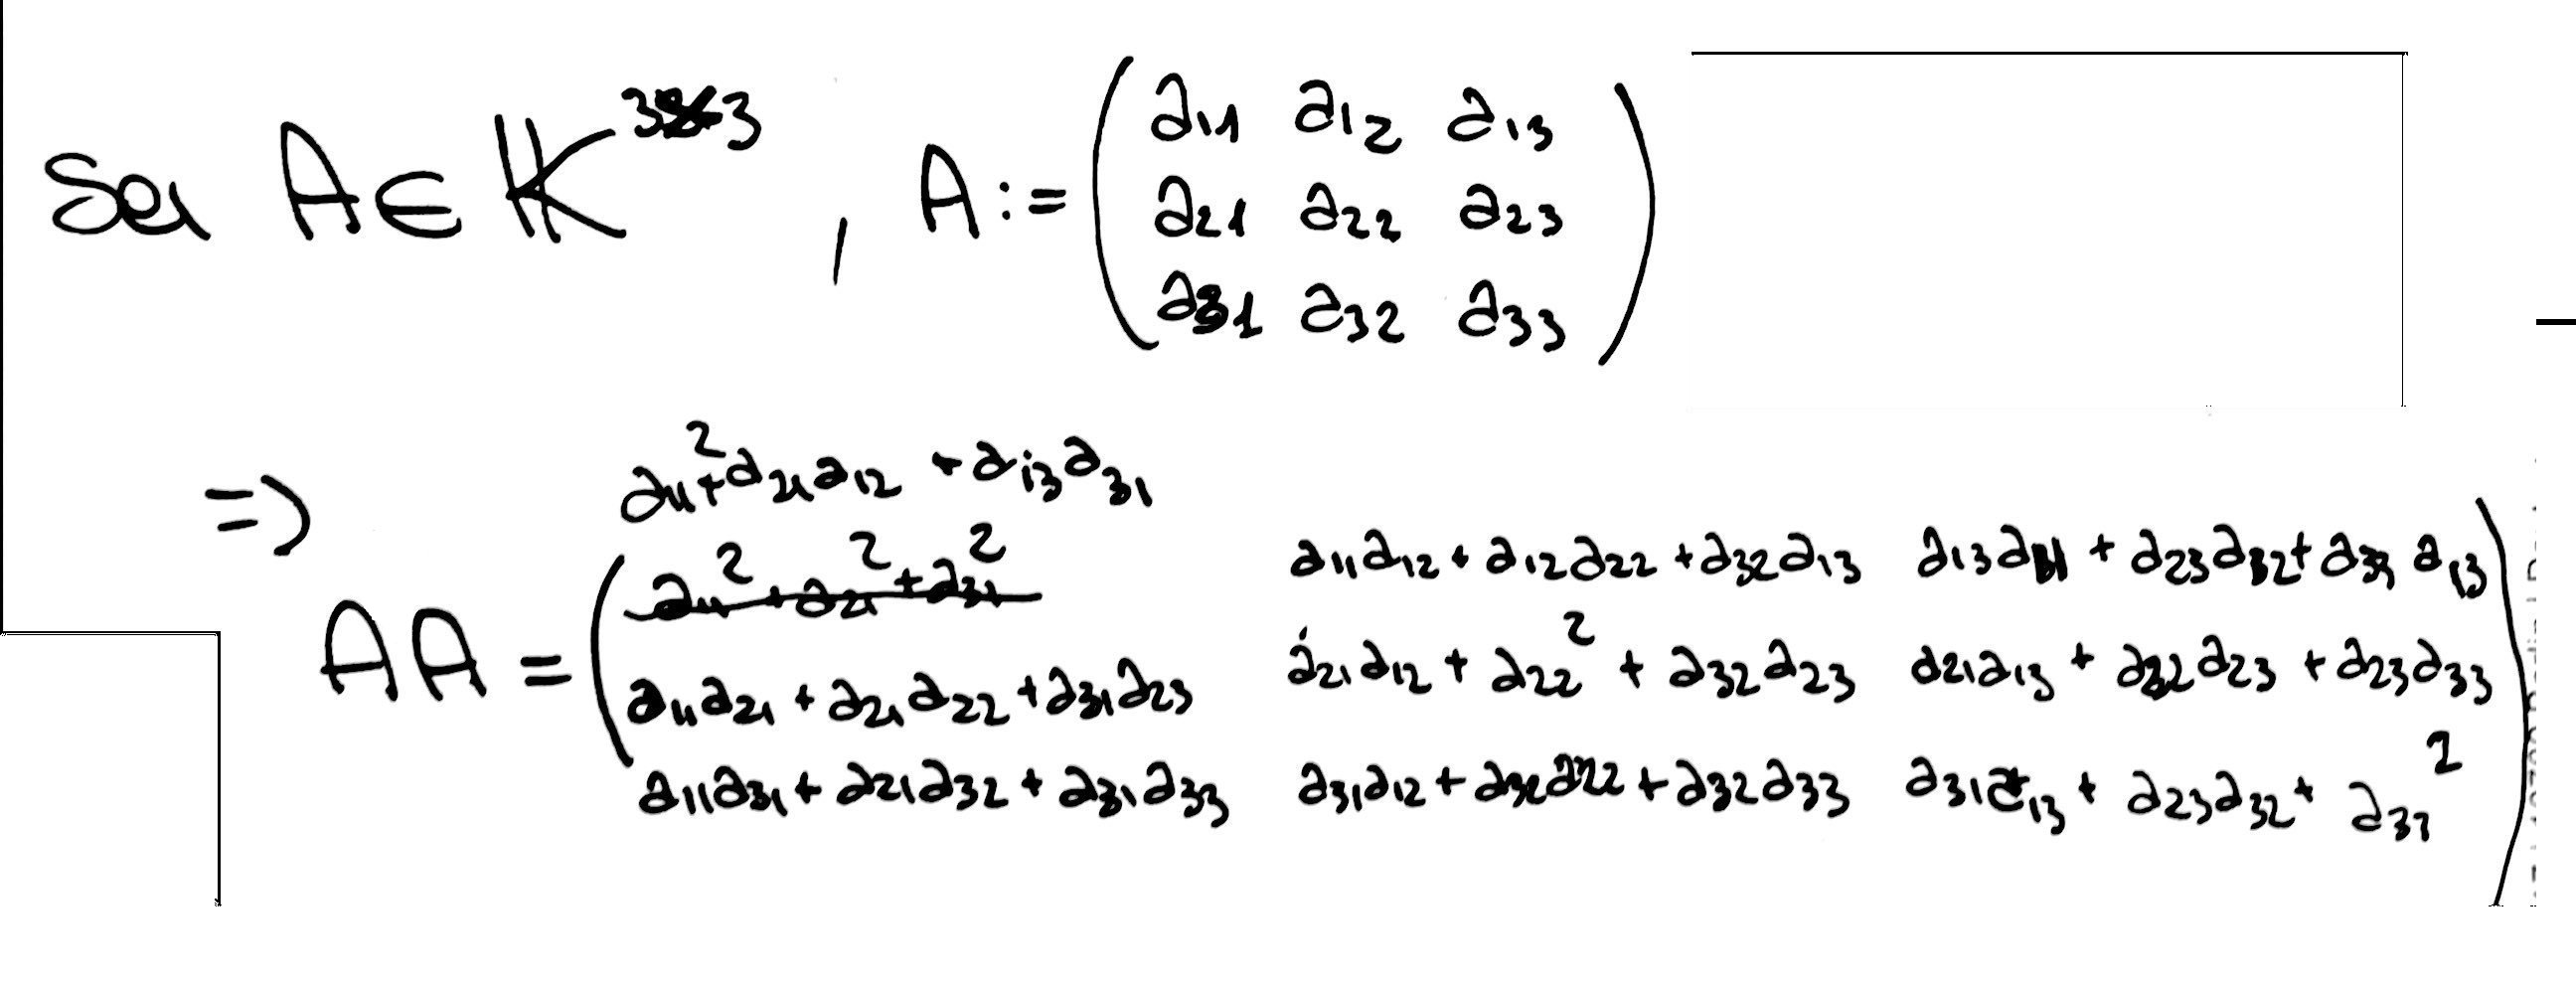 Sei A ∈ K^{3×3}, A := ( a11 a12 a13
a21 a22 a23
a31 a32 a33 )
=> a11² + a21a12 + a13a31
a11² + a21² + a31² a11a12 + a12a22 + a32a13 a13a11 + a23a12 + a33a13
AA = ( a11a21 + a21a22 + a31a23 a21a12 + a22² + a32a23 a21a13 + a22a23 + a23a33
a11a31 + a21a32 + a31a33 a31a12 + a32a22 + a32a33 a31a13 + a23a32 + a33² )